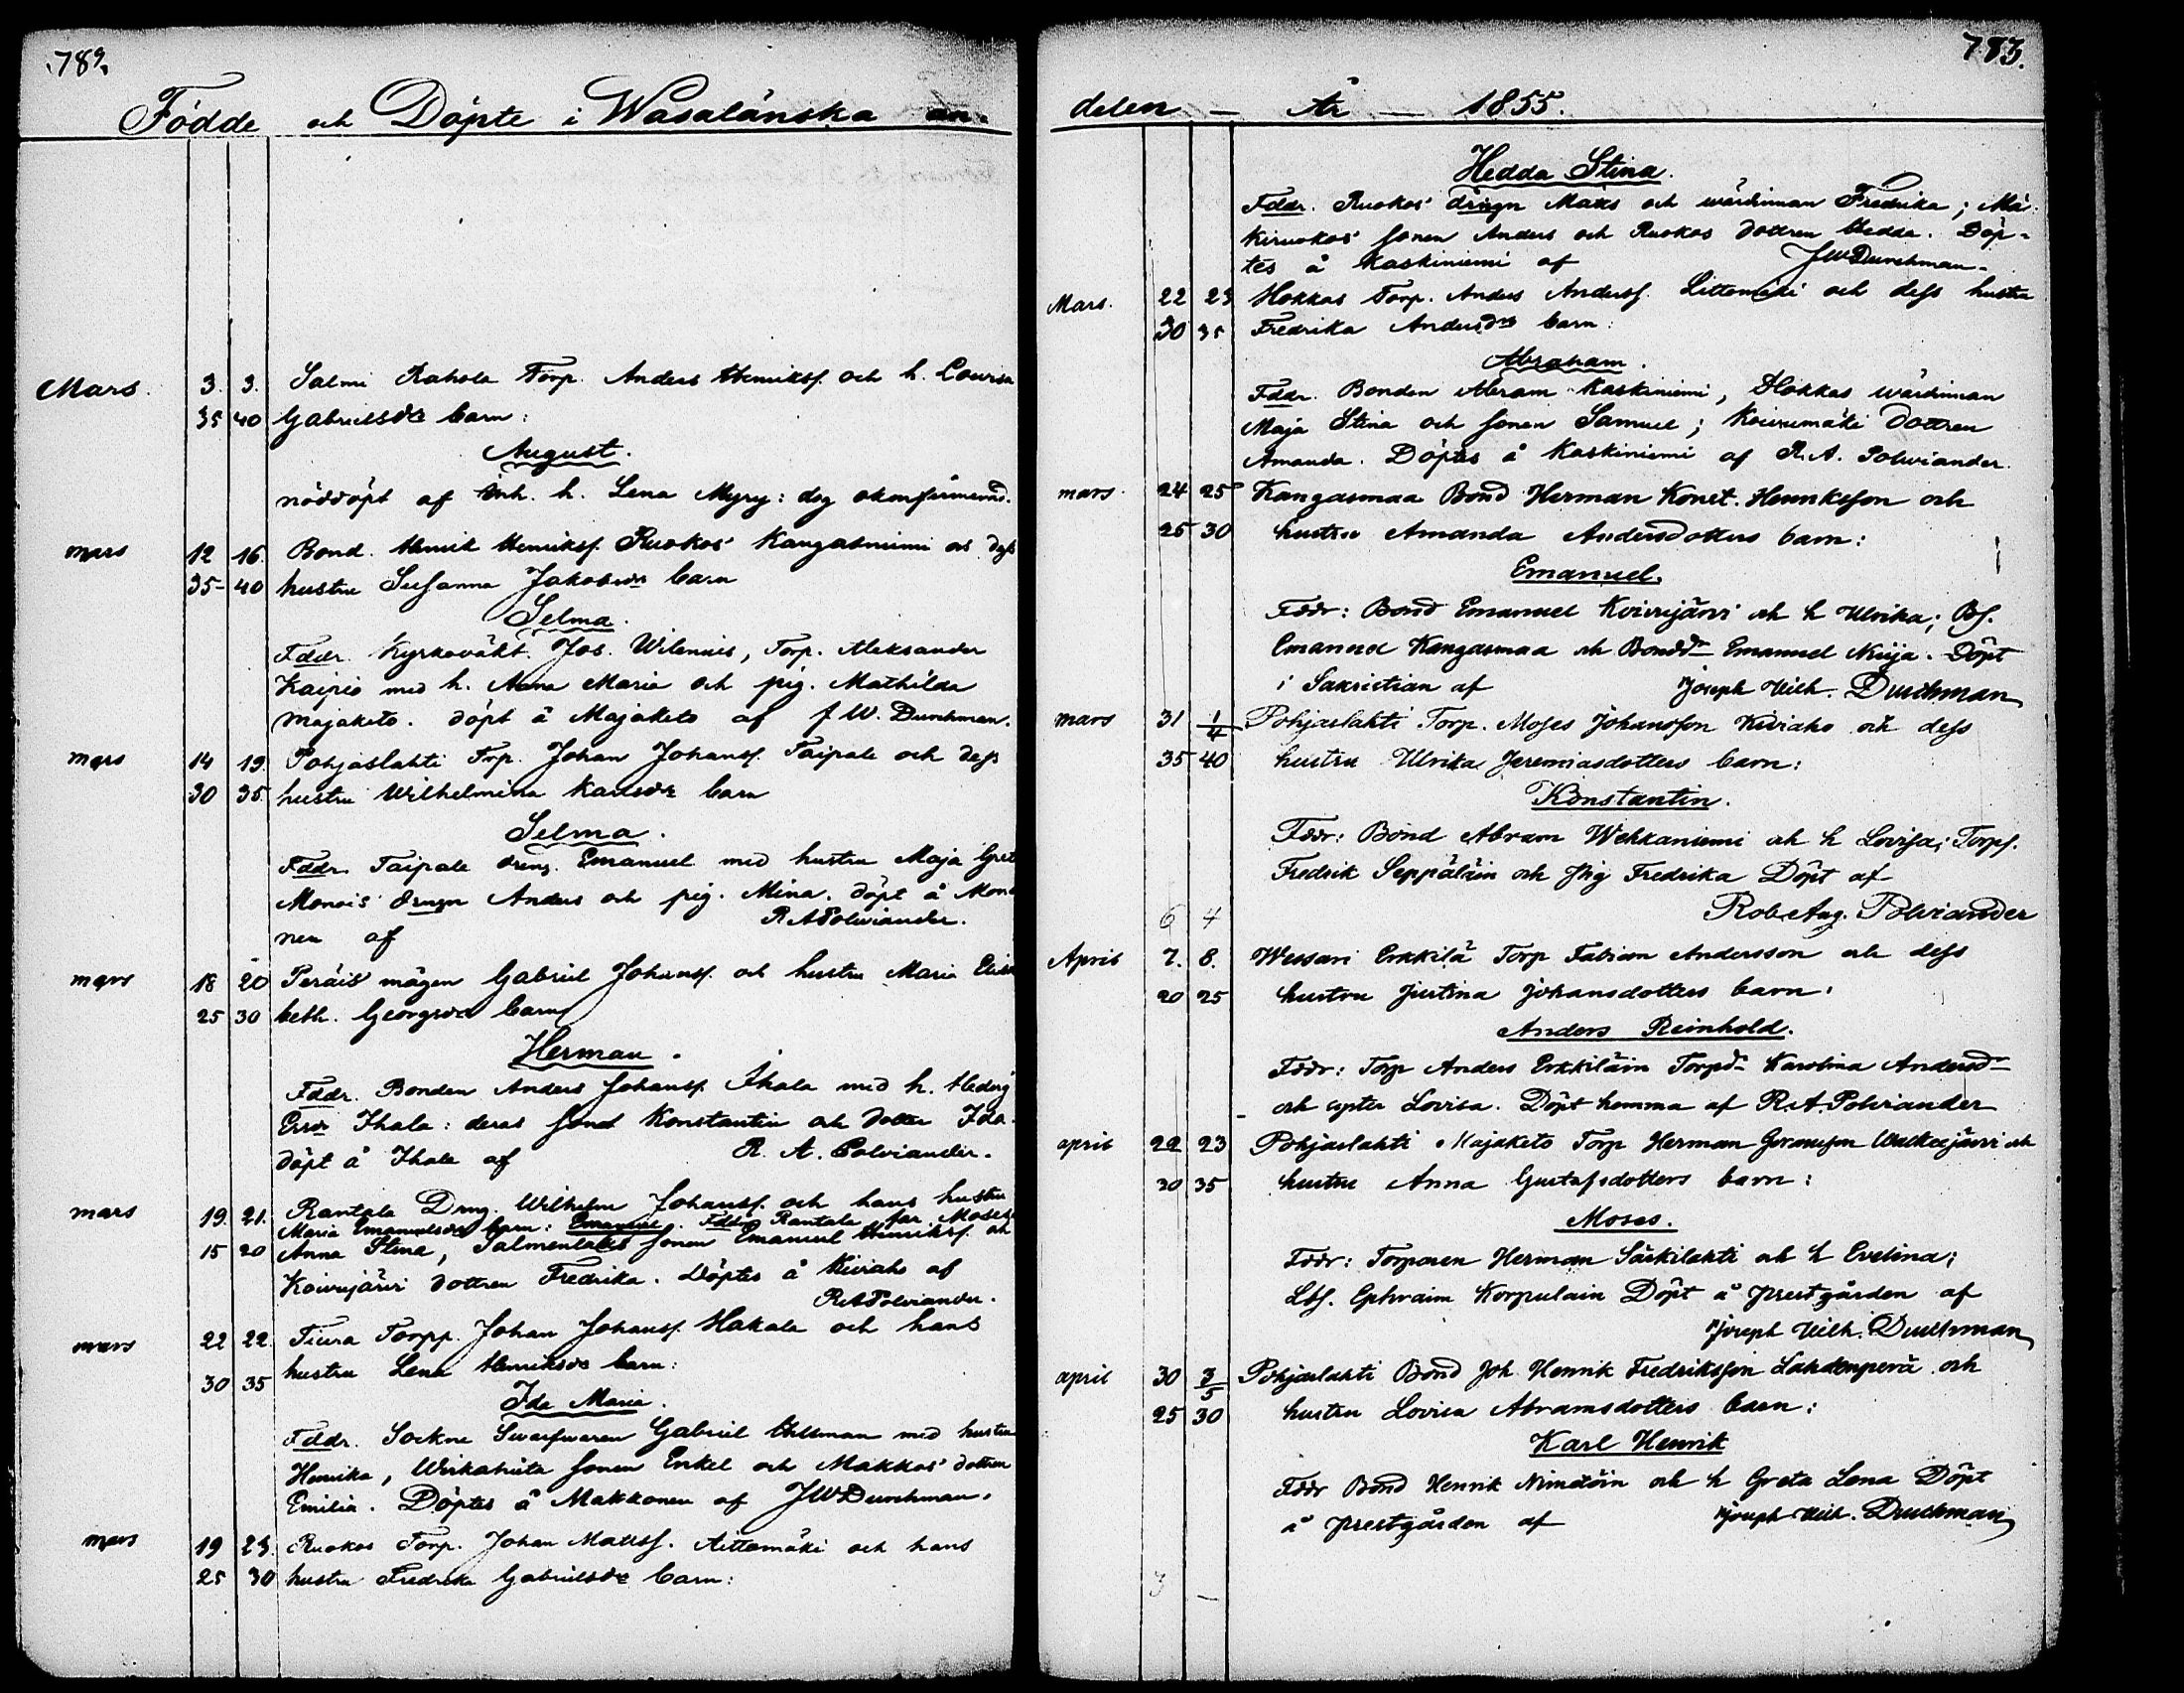 782.
Födde och Döpte i Wasalänska an-
Mars. 3. 3. Salmi Rahola Torp. Anders Henriksf. och h. Lovisa
35 40 Gabrielsdr barn:
August.
nöddöpt af Inh. h. Lena Myry: dog okonfirmerad.
mars 12 16. Bond. Henrik Henriksf. Ruokos Kangasniemi o. dess
35- 40 hustru Susanna Jakobsdr barn
Selma.
Fddr. Kyrkovakt. Jos. Wilenius, Torp. Aleksander
Kaipio med h. Anna Maria och pig. Mathilda
Majaketo. döpt å Majaketo af J W. Durchman.
mars 14 19. Pohjaslahti Trp. Johan Johansf. Taipale och dess
30 35. hustru Wilhelmina Karlsdr barn
Selma.
Fddr. Taipale dreng. Emanuel med hustru Maja Gret
Monois drengn Anders och pig. Mina. döpt å Mono
nen af R A Polviander.
mars 18 20 Peräis mågen Gabriel Johansf. och hustru Maria Elisa
25 30 beth. Georgsdr barn
Herman.
Fddr. Bonden Anders Johansf. Ihala med h. Hedvig
Ersdr Ihala: deras sonen Konstantin och dotter Ida.
döpt å Ihala af R. A. Polviander.
mars 19. 21. Rantala Dreng. Wilhelm Johansf. och hans hustru
Maria Emanuelsdr barn: Emanuel. Fddr Rantala far Moses
15 20 Anna Stina, Salmenlaks sonen Emanuel Henriksf. och
Koivujärvi dottren Fredrika. Döptes å Kiviaho af
R A Polviander.
mars 22 22. Tiura Torpp. Johan Johansf. Hakala och hans
30 35 hustru Lena Henriksdr barn:
Ida Maria.
Fddr. Sockne Svarfvaren Gabriel Ahlman med hustru
Henrika, sonen Erkel och Makkos dottren
Emilia. Döptes å Makkonen af J W Durchman.
mars 19 23. Ruokos Torp. Johan Matsf. Aittomäki och hans
25 30 hustru Fredrika Gabrielsdr barn:
783.
delen — År — 1855.
Hedda Stina.
Fddr. Ruokos drängn Maks och wärdinnan Fredrika; Mä-
kiruokos sonen Anders och Ruokos dottren Hedda. Döp-
tes å Kaskiniemi af J W Durchman.
Mars. 22 23 Hokkas Torp. Anders Andersf. Littomäki och dess hustru
30 35 Fredrika Andersdrs barn:
Abraham.
Fddr. Bonden Abram Kaskiniemi, Hokkas wärdinnan
Maja Stina och sonen Samuel; Koivumäki dottren
Amanda. Döptes å Kaskiniemi af R. A. Polviander.
mars 24 25 Kangasmaa Bond Herman Konst. Henriksson och
25 30 hustru Amanda Andersdotters barn:
Emanuel.
Fddr: Bond Emanuel Koivujärvi och h Ulrika; Bs.
Emanuel Kangasmaa och Bondd Emanuel Niija. Döpt
i Sakristian af Joseph Wilh. Durchman
mars 31 1/4 Pohjaslahti Torp. Moses Johansson Kiviaho och dess
35 40 hustru Ulrika Jeremiasdotters barn:
Konstantin.
Fddr: Bond Abram Wehkaniemi och h Lovisa; Torps.
Fredrik Seppäläin och Pig Fredrika Döpt af
6 4 Rob. Aug. Polviander
April 7. 8. Wessari Erkkilä Torp Fabian Andersson och dess
20 25 hustru Justina Johansdotters barn:
Anders Reinhold.
Fddr: Torp Anders Erkkiläin Torpd Karolina Andersd
och syster Lovisa. Döpt hemma af R. A. Polviander
april 22 23 Pohjaslahti Majaketo Torp Herman Göransson Walkeejärvi och
30 35 hustru Anna Gustafsdotters barn:
Moses.
Fddr: Torparen Herman Särkilahti och h Evelina;
Lbs. Ephraim Korpulain Döpt å prestgården af
Joseph Wilh. Durchman
april 30 3/5 Pohjaslahti Bond Joh Henrik Fredriksson Lahdenperä och
25 30 hustru Lovisa Abramsdotters barn:
Karl Henrik
Fddr Bond Henrik Nimitöin och h Greta Lena Döpt
å prestgården af Joseph Wilh. Durchman
3 —